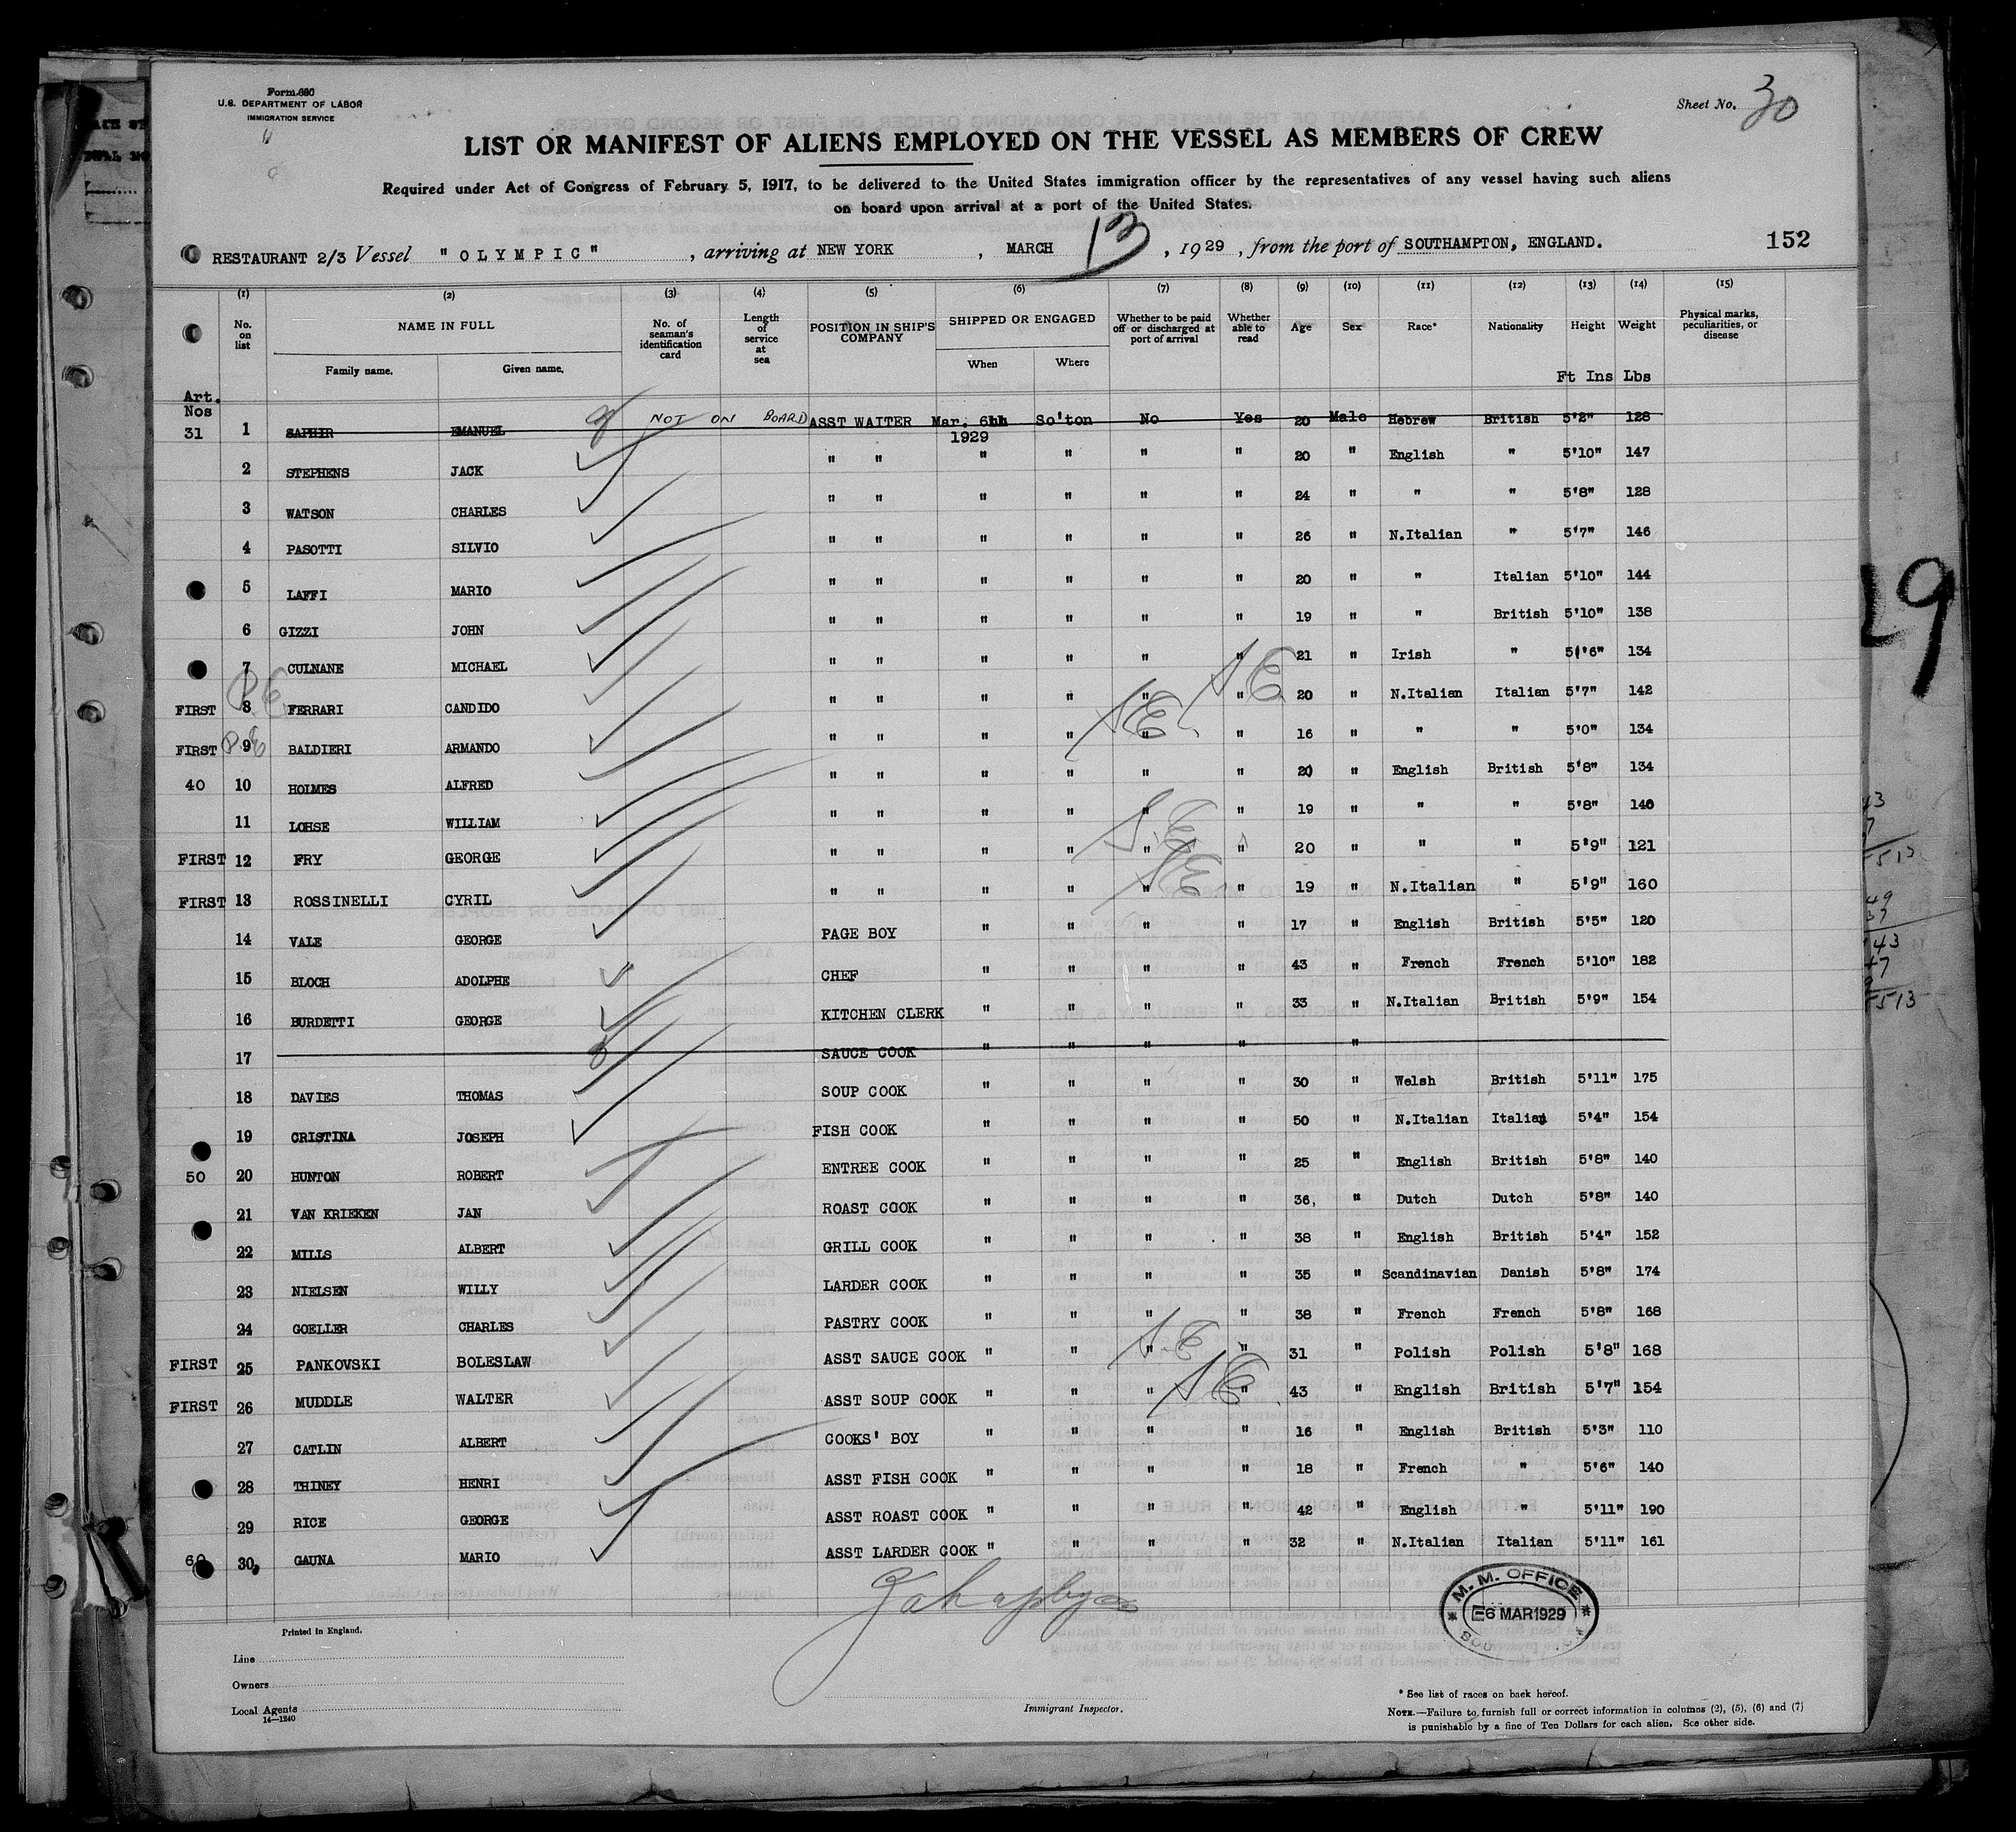 Form 680
U.S. DEPARTMENT OF LABOR
IMMIGRATION SERVICE
Sheet No. 30
LIST OR MANIFEST OF ALIENS EMPLOYED ON THE VESSEL AS MEMBERS OF CREW
Required under Act of Congress of February 5, 1917, to be delivered to the United States immigration officer by the representatives of any vessel having such aliens
on board upon arrival at a port of the United States.
RESTAURANT 2/3 Vessel "OLYMPIC", arriving at NEW YORK, MARCH 13, 1929, from the port of SOUTHAMPTON, ENGLAND. 152
(1) (2) (3) (4) (5) (6) (7) (8) (9) (10) (11) (12) (13) (14) (15)
No. on list NAME IN FULL No. of seaman's identification card Length of service at sea POSITION IN SHIP'S COMPANY SHIPPED OR ENGAGED Whether to be paid off or discharged at port of arrival Whether able to read Age Sex Race* Nationality Height Weight Physical marks, peculiarities, or disease
Family name. Given name. When Where
Ft Ins Lbs
Art. Nos
31 1 SAPHIR EMANUEL NOT ON BOARD ASST WAITER Mar. 6th 1929 So'ton No Yes 20 Male Hebrew British 5'2" 128
2 STEPHENS JACK " " " " " " 20 " English " 5'10" 147
3 WATSON CHARLES " " " " " " 24 " " " 5'8" 128
4 PASOTTI SILVIO " " " " " " 26 " N.Italian " 5'7" 146
5 LAFFI MARIO " " " " " " 20 " " Italian 5'10" 144
6 GIZZI JOHN " " " " " " 19 " " British 5'10" 138
7 CULNANE MICHAEL " " " " " " 21 " Irish " 5'6" 134
FIRST P.E 8 FERRARI CANDIDO " " " " " S.E " 20 " N.Italian Italian 5'7" 142
FIRST P.E 9 BALDIERI ARMANDO " " " " S.E " " 16 " " " 5'0" 134
40 10 HOLMES ALFRED " " " " " " 20 " English British 5'8" 134
11 LOHSE WILLIAM " " " " " " 19 " " " 5'8" 140
FIRST 12 FRY GEORGE " " " " S.E " " 20 " " " 5'9" 121
FIRST 13 ROSSINELLI CYRIL " " " " S.E " " 19 " N.Italian " 5'9" 160
14 VALE GEORGE PAGE BOY " " " " 17 " English British 5'5" 120
15 BLOCH ADOLPHE CHEF " " " " 43 " French French 5'10" 182
16 BURDETTI GEORGE KITCHEN CLERK " " " " 33 " N.Italian British 5'9" 154
17 SAUCE COOK " " " " "
18 DAVIES THOMAS SOUP COOK " " " " 30 " Welsh British 5'11" 175
19 CRISTINA JOSEPH FISH COOK " " " " 50 " N.Italian Italian 5'4" 154
50 20 HUNTON ROBERT ENTREE COOK " " " " 25 " English British 5'8" 140
21 VAN KRIEKEN JAN ROAST COOK " " " " 36, " Dutch Dutch 5'8" 140
22 MILLS ALBERT GRILL COOK " " " " 38 " English British 5'4" 152
23 NIELSEN WILLY LARDER COOK " " " " 35 " Scandinavian Danish 5'8" 174
24 GOELLER CHARLES PASTRY COOK " " " " 38 " French French 5'8" 168
FIRST 25 PANKOVSKI BOLESLAW ASST SAUCE COOK " " S.E " " 31 " Polish Polish 5'8" 168
FIRST 26 MUDDLE WALTER ASST SOUP COOK " " " S.E " 43 " English British 5'7" 154
27 CATLIN ALBERT COOKS' BOY " " " " 16 " English British 5'3" 110
28 THINEY HENRI ASST FISH COOK " " " " 18 " French " 5'6" 140
29 RICE GEORGE ASST ROAST COOK " " " " 42 " English " 5'11" 190
60 30 GAUNA MARIO ASST LARDER COOK " " " " 32 " N.Italian Italian 5'11" 161
M. M. OFFICE
6 MAR 1929
SOU
Printed in England.
Line
Owners
Local Agents
14—1240
Immigrant Inspector.
* See list of races on back hereof.
NOTE.—Failure to furnish full or correct information in columns (2), (5), (6) and (7)
is punishable by a fine of Ten Dollars for each alien. See other side.